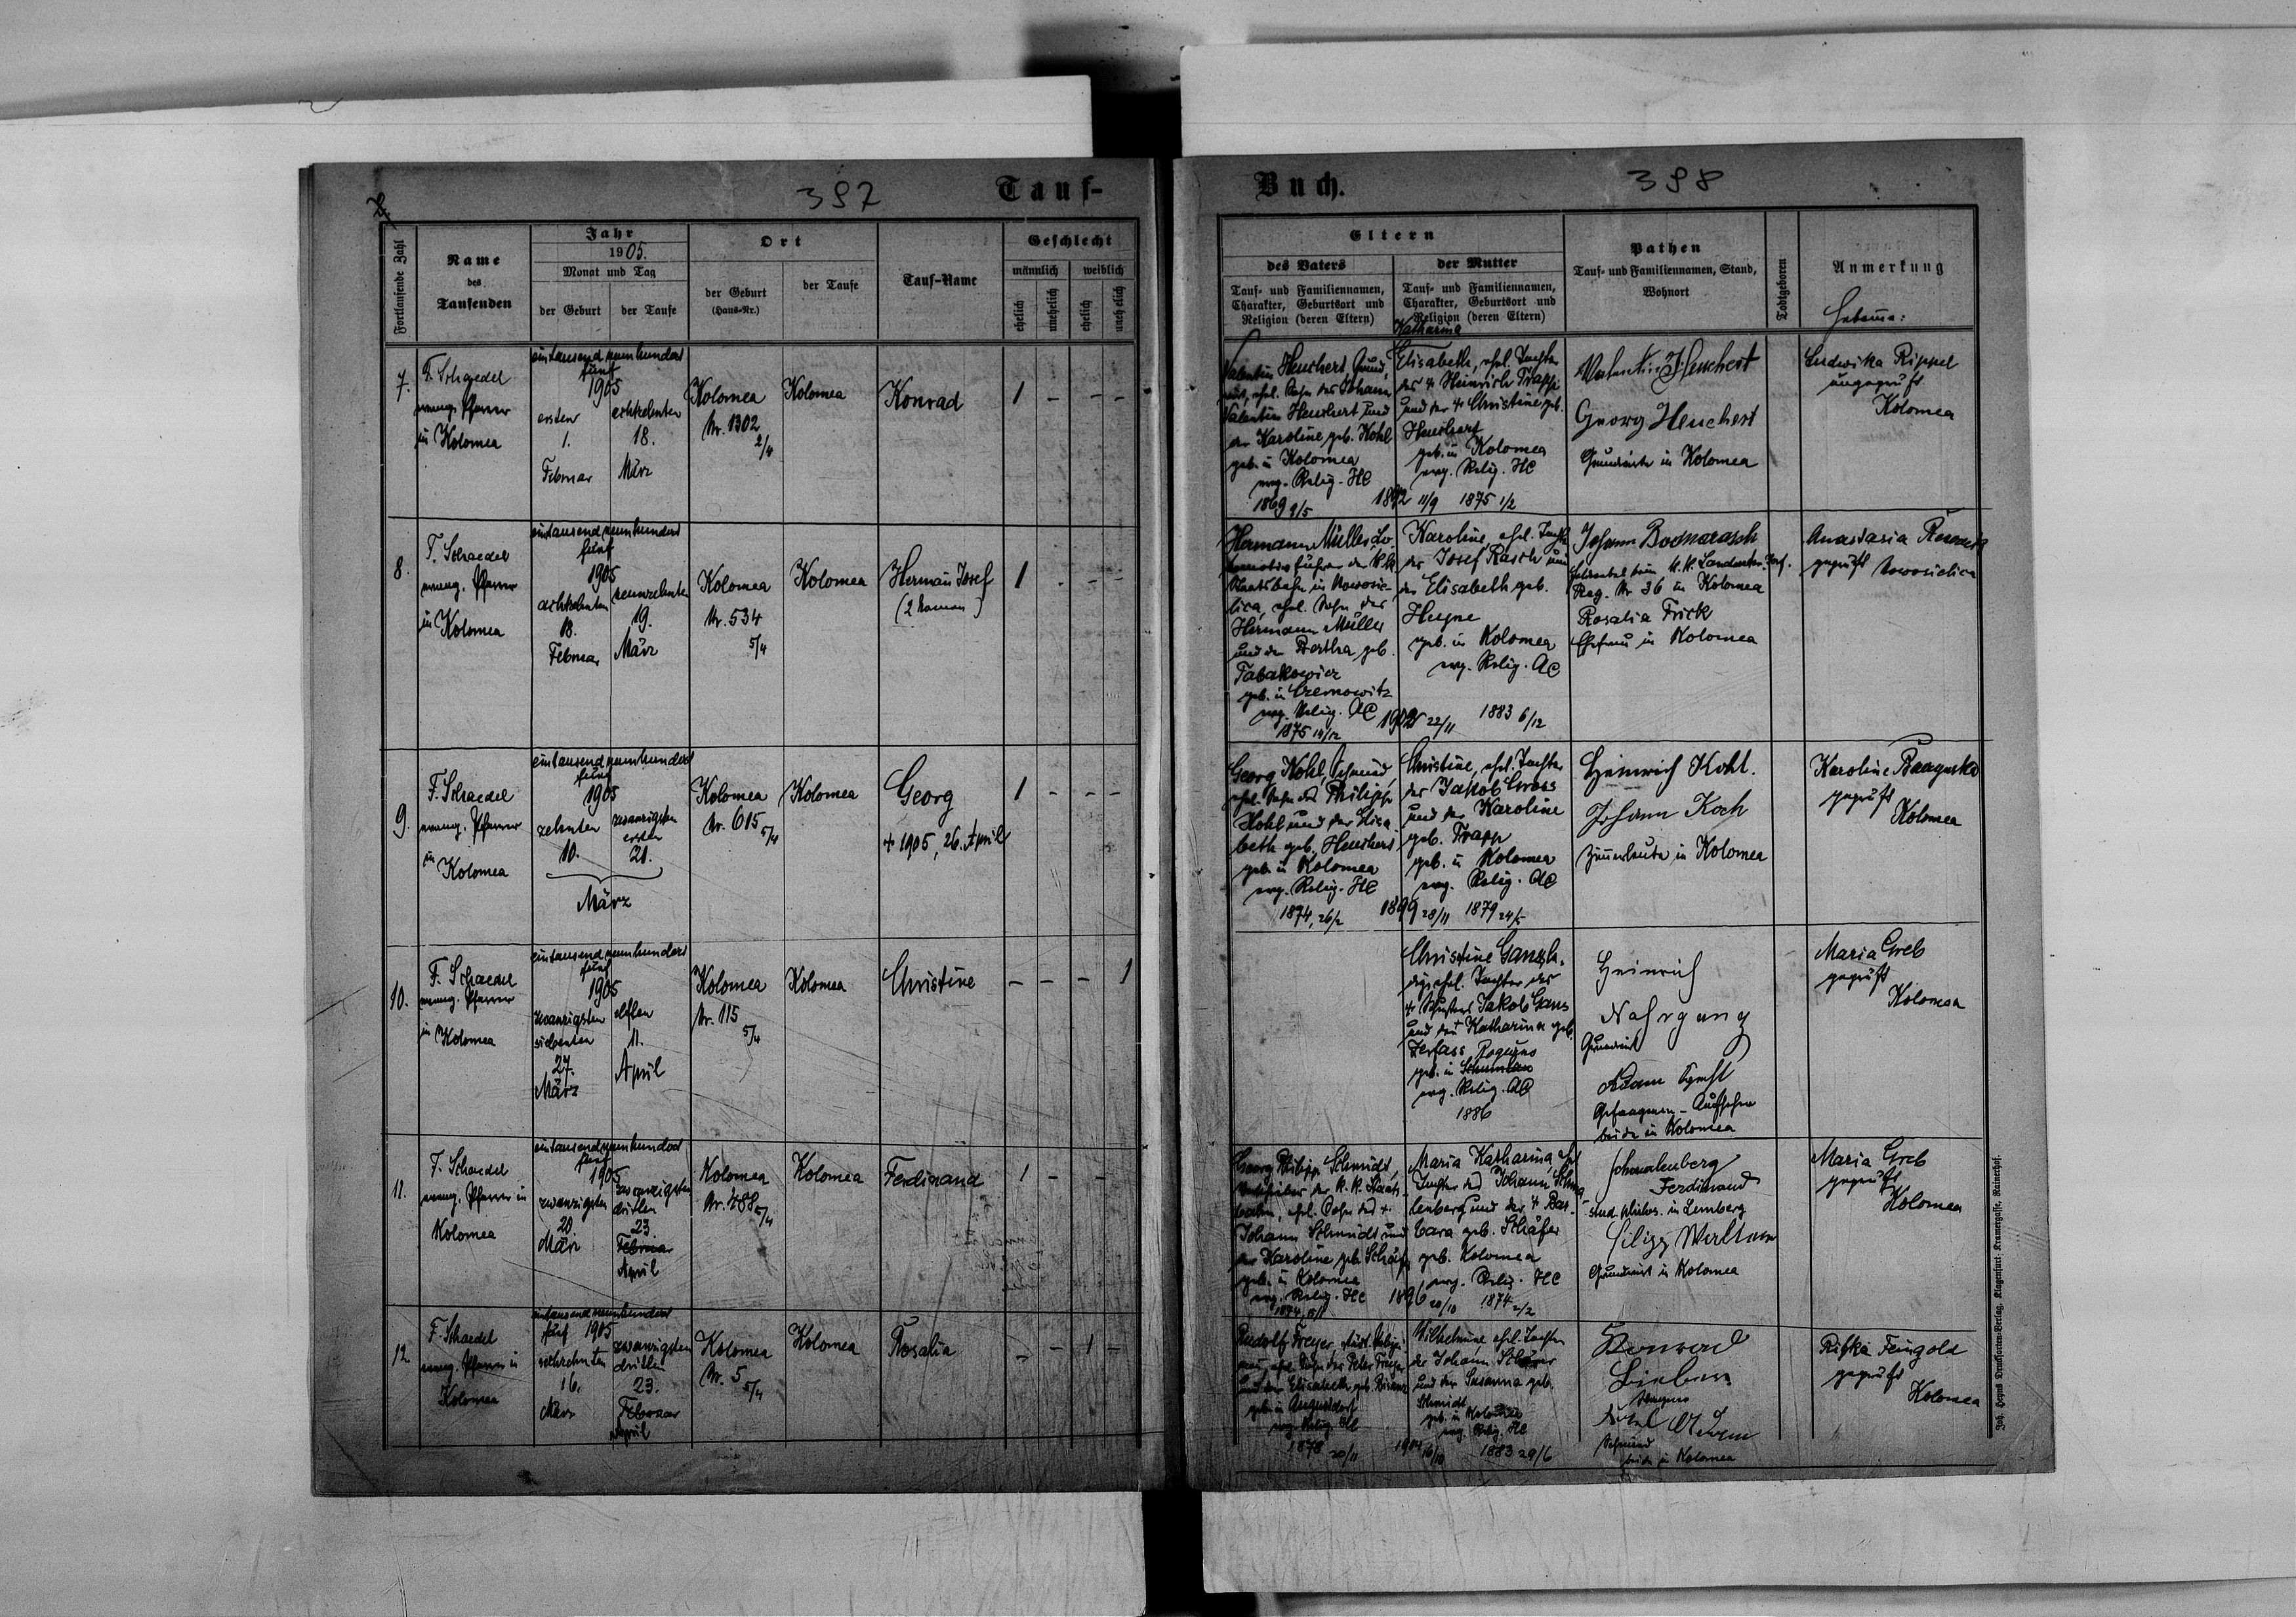 397
Tauf-
Fortlaufende Zahl
Name
des
Taufenden
Jahr
1905.
Monat und Tag
der Geburt
der Taufe
Ort
der Geburt
(Haus-Nr.)
der Taufe
Tauf-Name
Geschlecht
männlich
weiblich
ehelich
unehelich
ehelich
unehelich
7.
F. Schaedel
evang. Pfarrer
in Kolomea
eintausend neunhundert
fünf
1905
ersten
1.
Februar
achtzehnten
18.
März
Kolomea
Nr. 1302
2/4
Kolomea
Konrad
1 - - -
8.
F. Schaedel
evang. Pfarrer
in Kolomea
eintausend neunhundert
fünf
1905
achtzehnten
18.
Februar
neunzehnten
19.
März
Kolomea
Nr. 534
5/4
Kolomea
Hermann Josef
(2 Namen)
1 - - -
9.
F. Schaedel
evang. Pfarrer
in
Kolomea
eintausend neunhundert
fünf
1905
zehnten
10.
zwanzigsten
ersten
21.
März
Kolomea
Nr. 615
5/4
Kolomea
Georg
+ 1905, 26. April
1 - - -
10.
F. Schaedel
evang. Pfarrer
in
Kolomea
eintausend neunhundert
fünf
1905
zwanzigsten
siebenten
27.
März
elften
11.
April
Kolomea
Nr. 115
5/4
Kolomea
Christine
- - - 1
11.
F. Schaedel
evang. Pfarrer in
Kolomea
eintausend neunhundert
fünf
1905
zwanzigsten
20
März
zwanzigsten
dritten
23.
Februar
April
Kolomea
Nr. 488
5/4
Kolomea
Ferdinand
1 - - -
12
F. Schaedel
evang. Pfarrer in
Kolomea
eintausend neunhundert
fünf 1905
sechzehnten
16.
März
zwanzigsten
dritten
23.
Februar
April
Kolomea
Nr. 5
5/4
Kolomea
Rosalia
- - 1 -
Buch.
398
Eltern
des Vaters
Tauf- und Familiennamen,
Charakter, Geburtsort und
Religion (deren Eltern)
der Mutter
Tauf- und Familiennamen,
Charakter, Geburtsort und
Religion (deren Eltern)
Pathen
Tauf- und Familiennamen, Stand,
Wohnort
Todtgeboren
Anmerkung
Hebamme:
Valentin Heuchert, Grund-
wirt, ehel. Sohn des Johann
Valentin Heuchert und
der Karoline geb. Kohl
geb. in Kolomea
evg. Relig. HC
1869 9/5
1892 11/9
Katharina
Elisabeth, ehel. Tochter
des + Heinrich Trapp
und der + Christine geb.
Heuchert
geb. in Kolomea
evg. Relig. HC
1875 1/2
Valentin Heuchert
Georg Heuchert
Grundwirte in Kolomea
Ludwika Rippel
ungeprüft
Kolomea
Hermann Müller, Lo-
komotivführer der k.k.
Staatsbahn in Nowosie-
lica, ehel. Sohn des
Hermann Müller
und der Bertha geb.
Tabakowicz
geb. in Czernowitz
evg. Relig. AC
1875 14/12
22/11
Karoline, ehel. Tochter
des Josef Rasch und
der Elisabeth geb.
Heyne
geb. in Kolomea
evg. Relig. AC
1883 6/12
Johann Bodnarasch
Feldwebel beim k.k. Landwehr-Inf.
Reg. Nr 36 in Kolomea
Rosalia Frick
Ehefrau in Kolomea
Anastasia
geprüft Nowosielica
Georg Kohl, Schmied,
ehel. Sohn des Philipp
Kohl und der Elisa-
beth geb. Heuchert
geb. in Kolomea
evg. Relig. HC
1874, 26/2
1899 28/11
Christine, ehel. Tochter
des Jakob Gross
und der Karoline
geb. Trapp
geb. in Kolomea
evg. Relig. AC
1879
Heinrich Kohl.
Johann Koch
Zimmerleute in Kolomea
Karoline
geprüft
Kolomea
ehel. Tochter des
+ Jakob Gans
und der + Katharina geb.
Zerfass,
geb. in
evg. Relig. AC
1886
Heinrich
Nahrgang
Grundwirt
Adam
Gefangenen-Aufseher
beide in Kolomea
Maria Greb
geprüft
Kolomea
Georg Philipp Schmidt,
der k.k. Staats-
bahn, ehel. Sohn des +
Johann Schmidt und
der Karoline geb. Schäfer
geb. in Kolomea
evg. Relig. HC
1896 20/10
Maria Katharina, ehel.
Tochter des Johann Schma-
lenberg und der + Bar-
bara geb. Schäfer
geb. Kolomea
evg. Relig. HC
1874 2/2
Schmalenberg
Ferdinand
in Lemberg
Filipp
Grundwirt in Kolomea
Maria Greb
geprüft
Kolomea
Rudolf Freyer,
ehel. Sohn des Peter Freyer
und der Elisabeth geb.
geb. in Augustdorf
evg. Relig. HC
1878 20/11
1904 16/10
Wilhelmine, ehel. Tochter
des Johann
und der Susanna geb.
Schmidt
geb. in Kolomea
evg. Relig. HC
1883 29/6
Konrad
Schmied
beide in Kolomea
Rifka Feingold
geprüft
Kolomea
Joh. Heyns Drucksorten-Verlag, Klagenfurt, Kramergasse, Rainerhof.